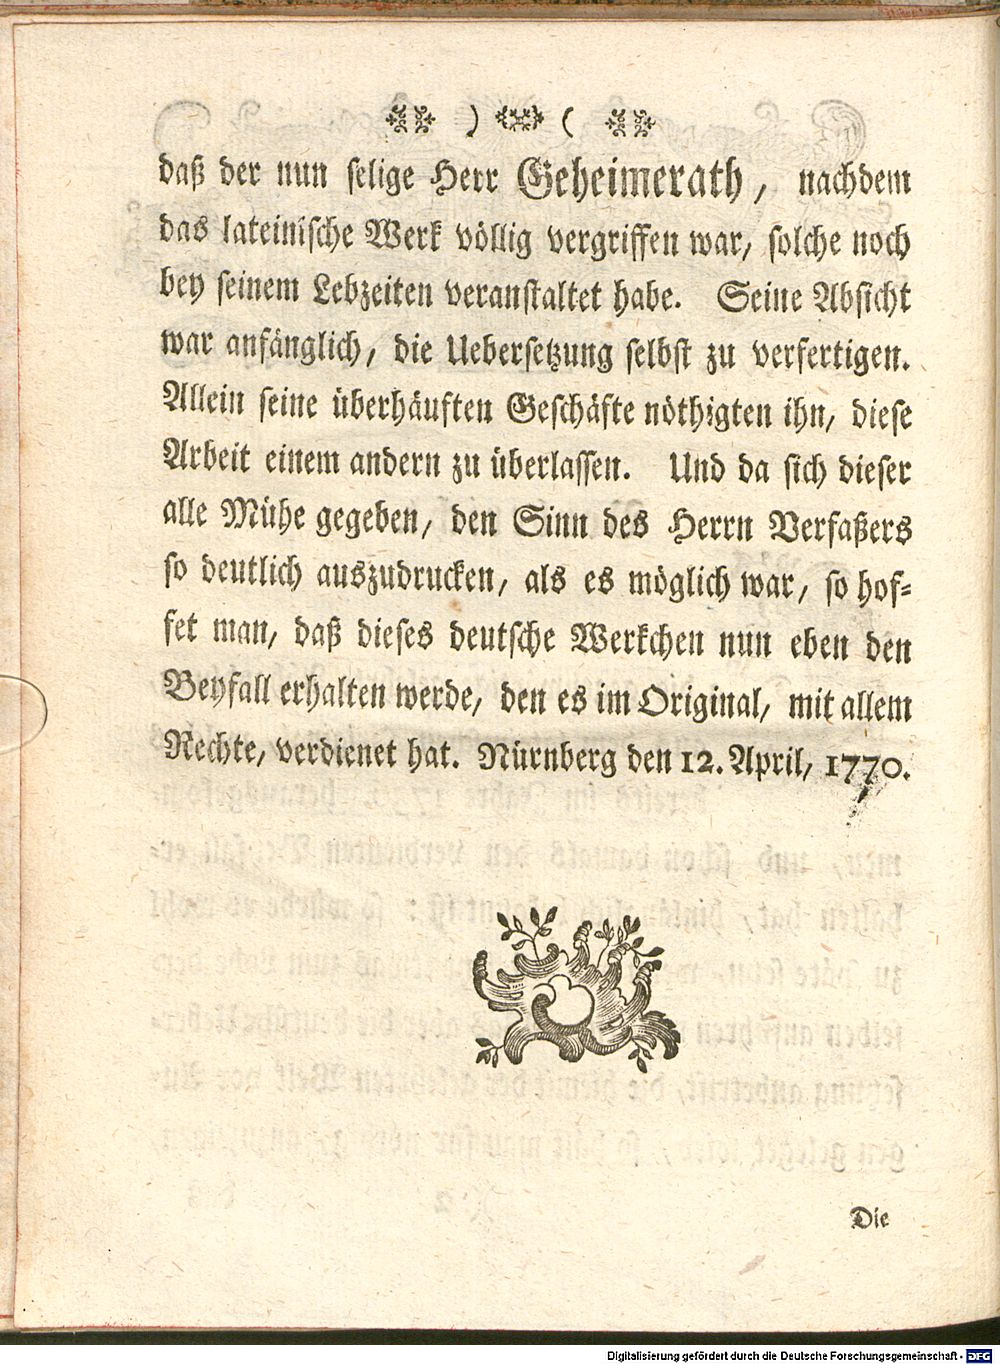 ) (
daß der nun selige Herr Geheimerath, nachdem
das lateinische Werk völlig vergriffen war, solche noch
bey seinem Lebzeiten veranstaltet habe. Seine Absicht
war anfänglich, die Uebersetzung selbst zu verfertigen.
Allein seine überhäuften Geschäfte nöthigten ihn, diese
Arbeit einem andern zu überlassen. Und da sich dieser
alle Mühe gegeben, den Sinn des Herrn Verfaßers
so deutlich auszudrucken, als es möglich war, so hof-
fet man, daß dieses deutsche Werkchen nun eben den
Beyfall erhalten werde, den es im Original, mit allem
Rechte, verdienet hat. Nürnberg den 12. April, 1770.
Die
Digitalisierung gefördert durch die Deutsche Forschungsgemeinschaft - DFG